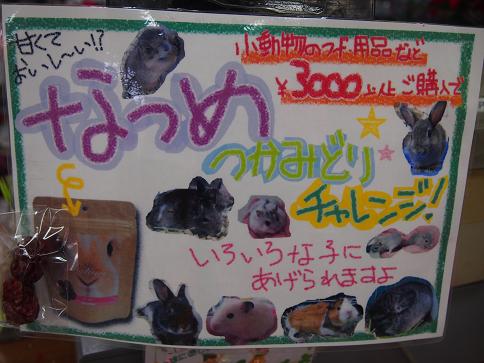 甘くて
おいし〜い!?
小動物のフード・用品など
¥3000以上ご購入で
なつめ
つかみどり
チャレンジ!
いろいろな子に
あげられますよ